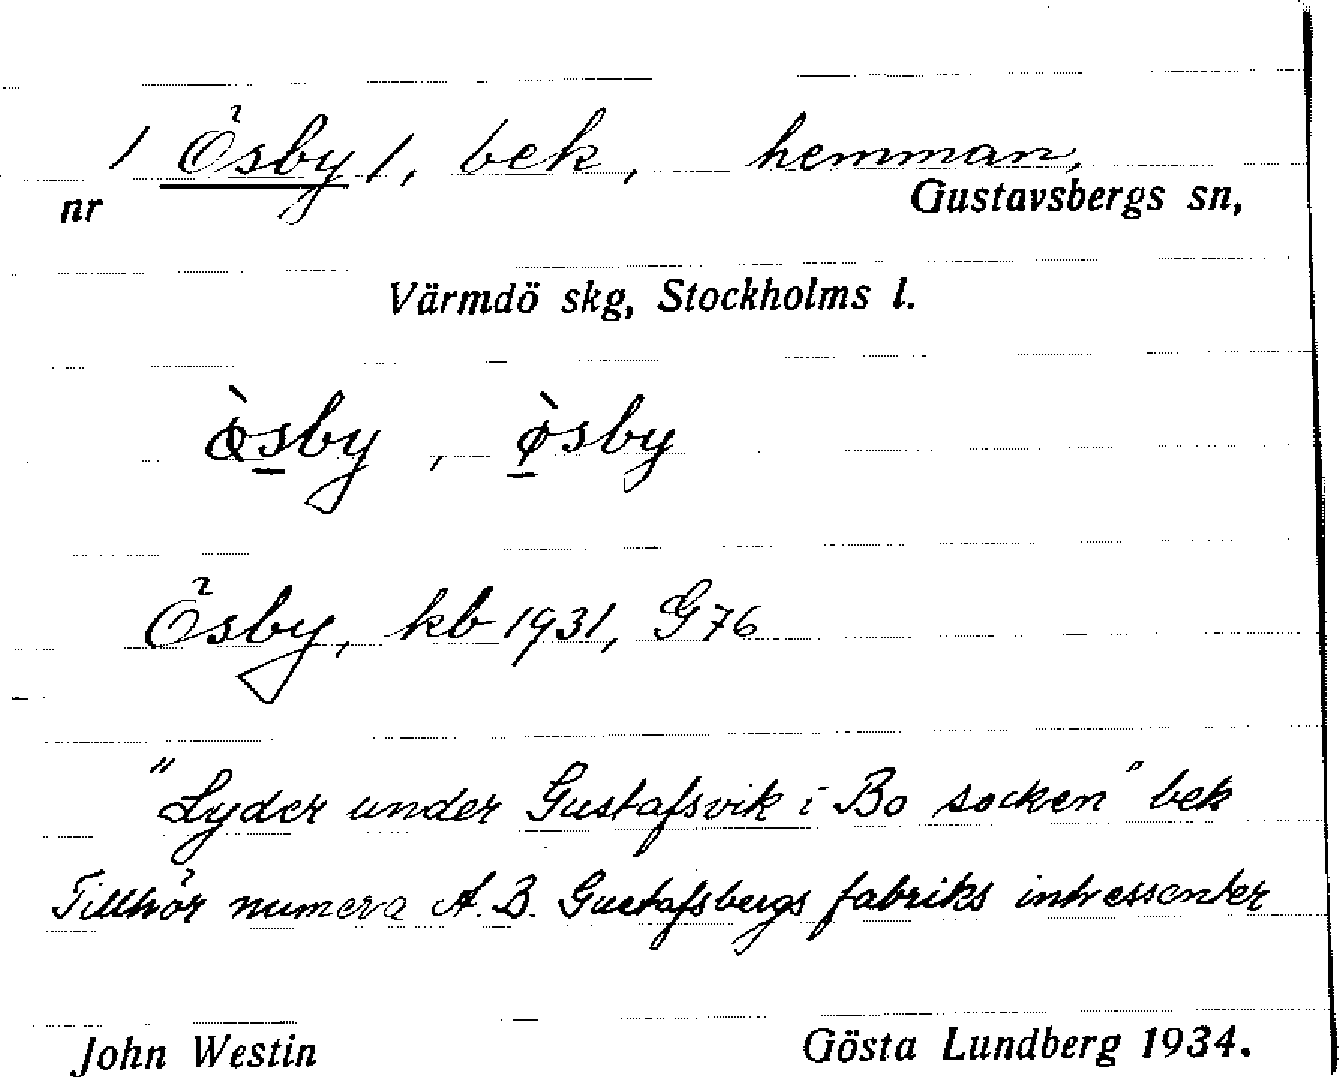 1 Ösby 1, bek, hemman,
nr Gustavsbergs sn,
Värmdö skg, Stockholms l.
ø̀sby, ø̀sby
Ösby, kb 1931, G76
"Lyder under Gustafsvik i Bo socken" bek
Tillhör numera A.B. Gustafsbergs fabriks intressenter
John Westin Gösta Lundberg 1934.